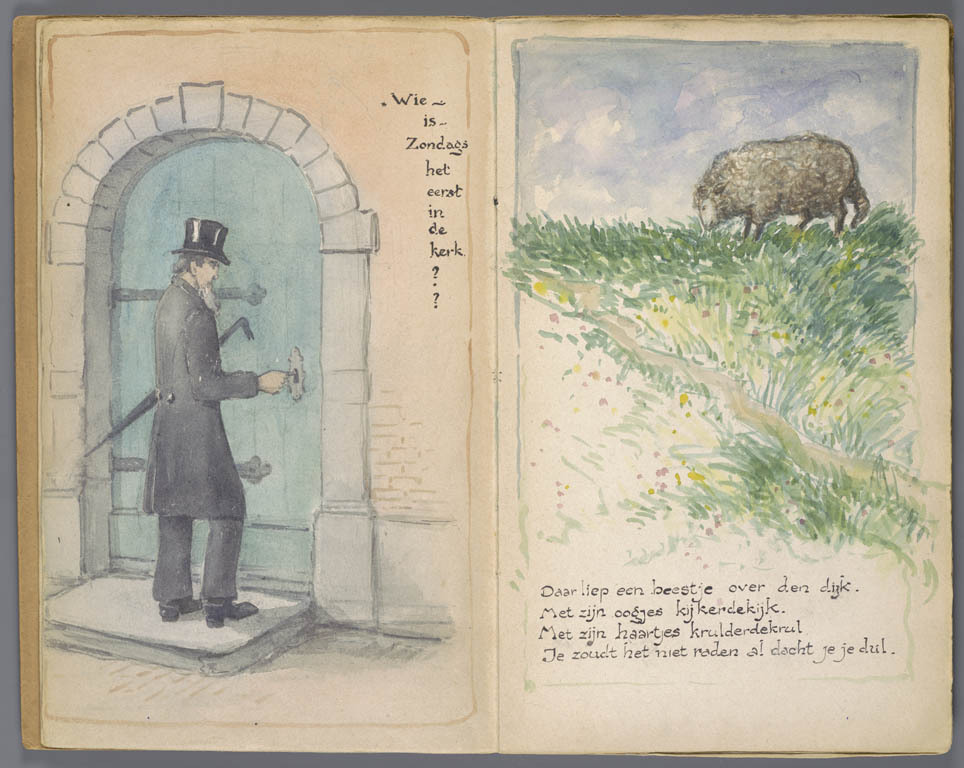 „Wie
is
Zondags
het
eerst
in
de
kerk.
?
?
Daar liep een beestje over den dijk.
Met zijn oogjes kijkerdekijk.
Met zijn haartjes krulderdekrul
Je zoudt het niet raden al dacht je je dul.